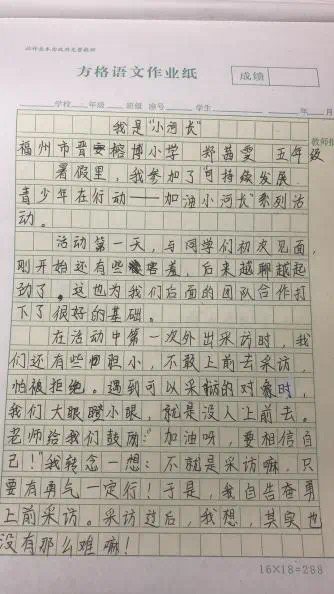 此作业本由政府免费提供
方格语文作业纸
成绩
学校 年级 班级 座号 学生 年 月
教师
我是“小河长”
福州市晋安榕博小学 郑茜雯 五年级
暑假里，我参加了可持续发展
青少年在行动——加油小河长”系列活
动。
活动第一天，与同学们初次见面，
刚开始还有些害羞，后来越聊越起
劲了，这也为我们后面的团队合作打
下了很好的基础。
在活动中第一次外出采访时，我
们还有些胆小，不敢上前去采访，
怕被拒绝。遇到可以采访的对象时，
我们大眼瞪小眼，就是没人上前去。
老师给我们鼓励：“加油呀，要相信自
己！”我转念一想：不就是采访嘛，只
要有勇气一定行！于是，我自告奋勇
上前采访。采访过后，我想，其实也
没有那么难嘛！
16×18=288